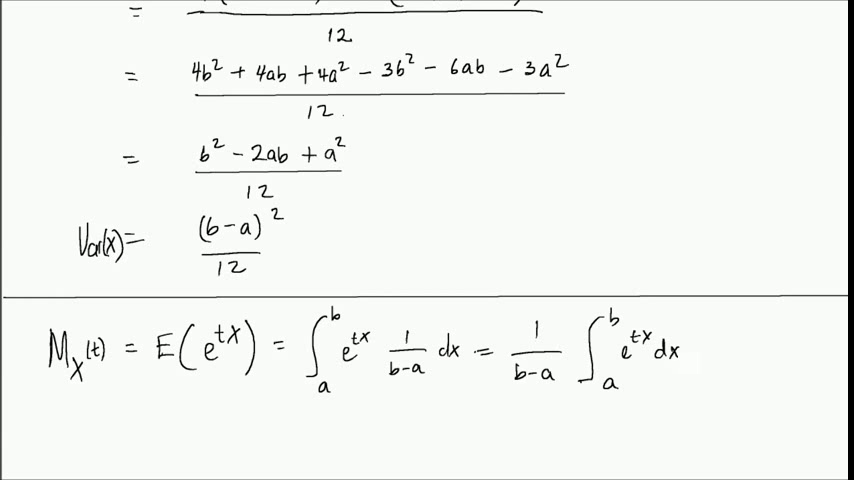 = 12
= 4b² + 4ab + 4a² - 3b² - 6ab - 3a² / 12
= b² - 2ab + a² / 12
Var(x) = (b-a)² / 12
M_X(t) = E(e^{tX}) = ∫_a^b e^{tx} 1/(b-a) dx = 1/(b-a) ∫_a^b e^{tx} dx